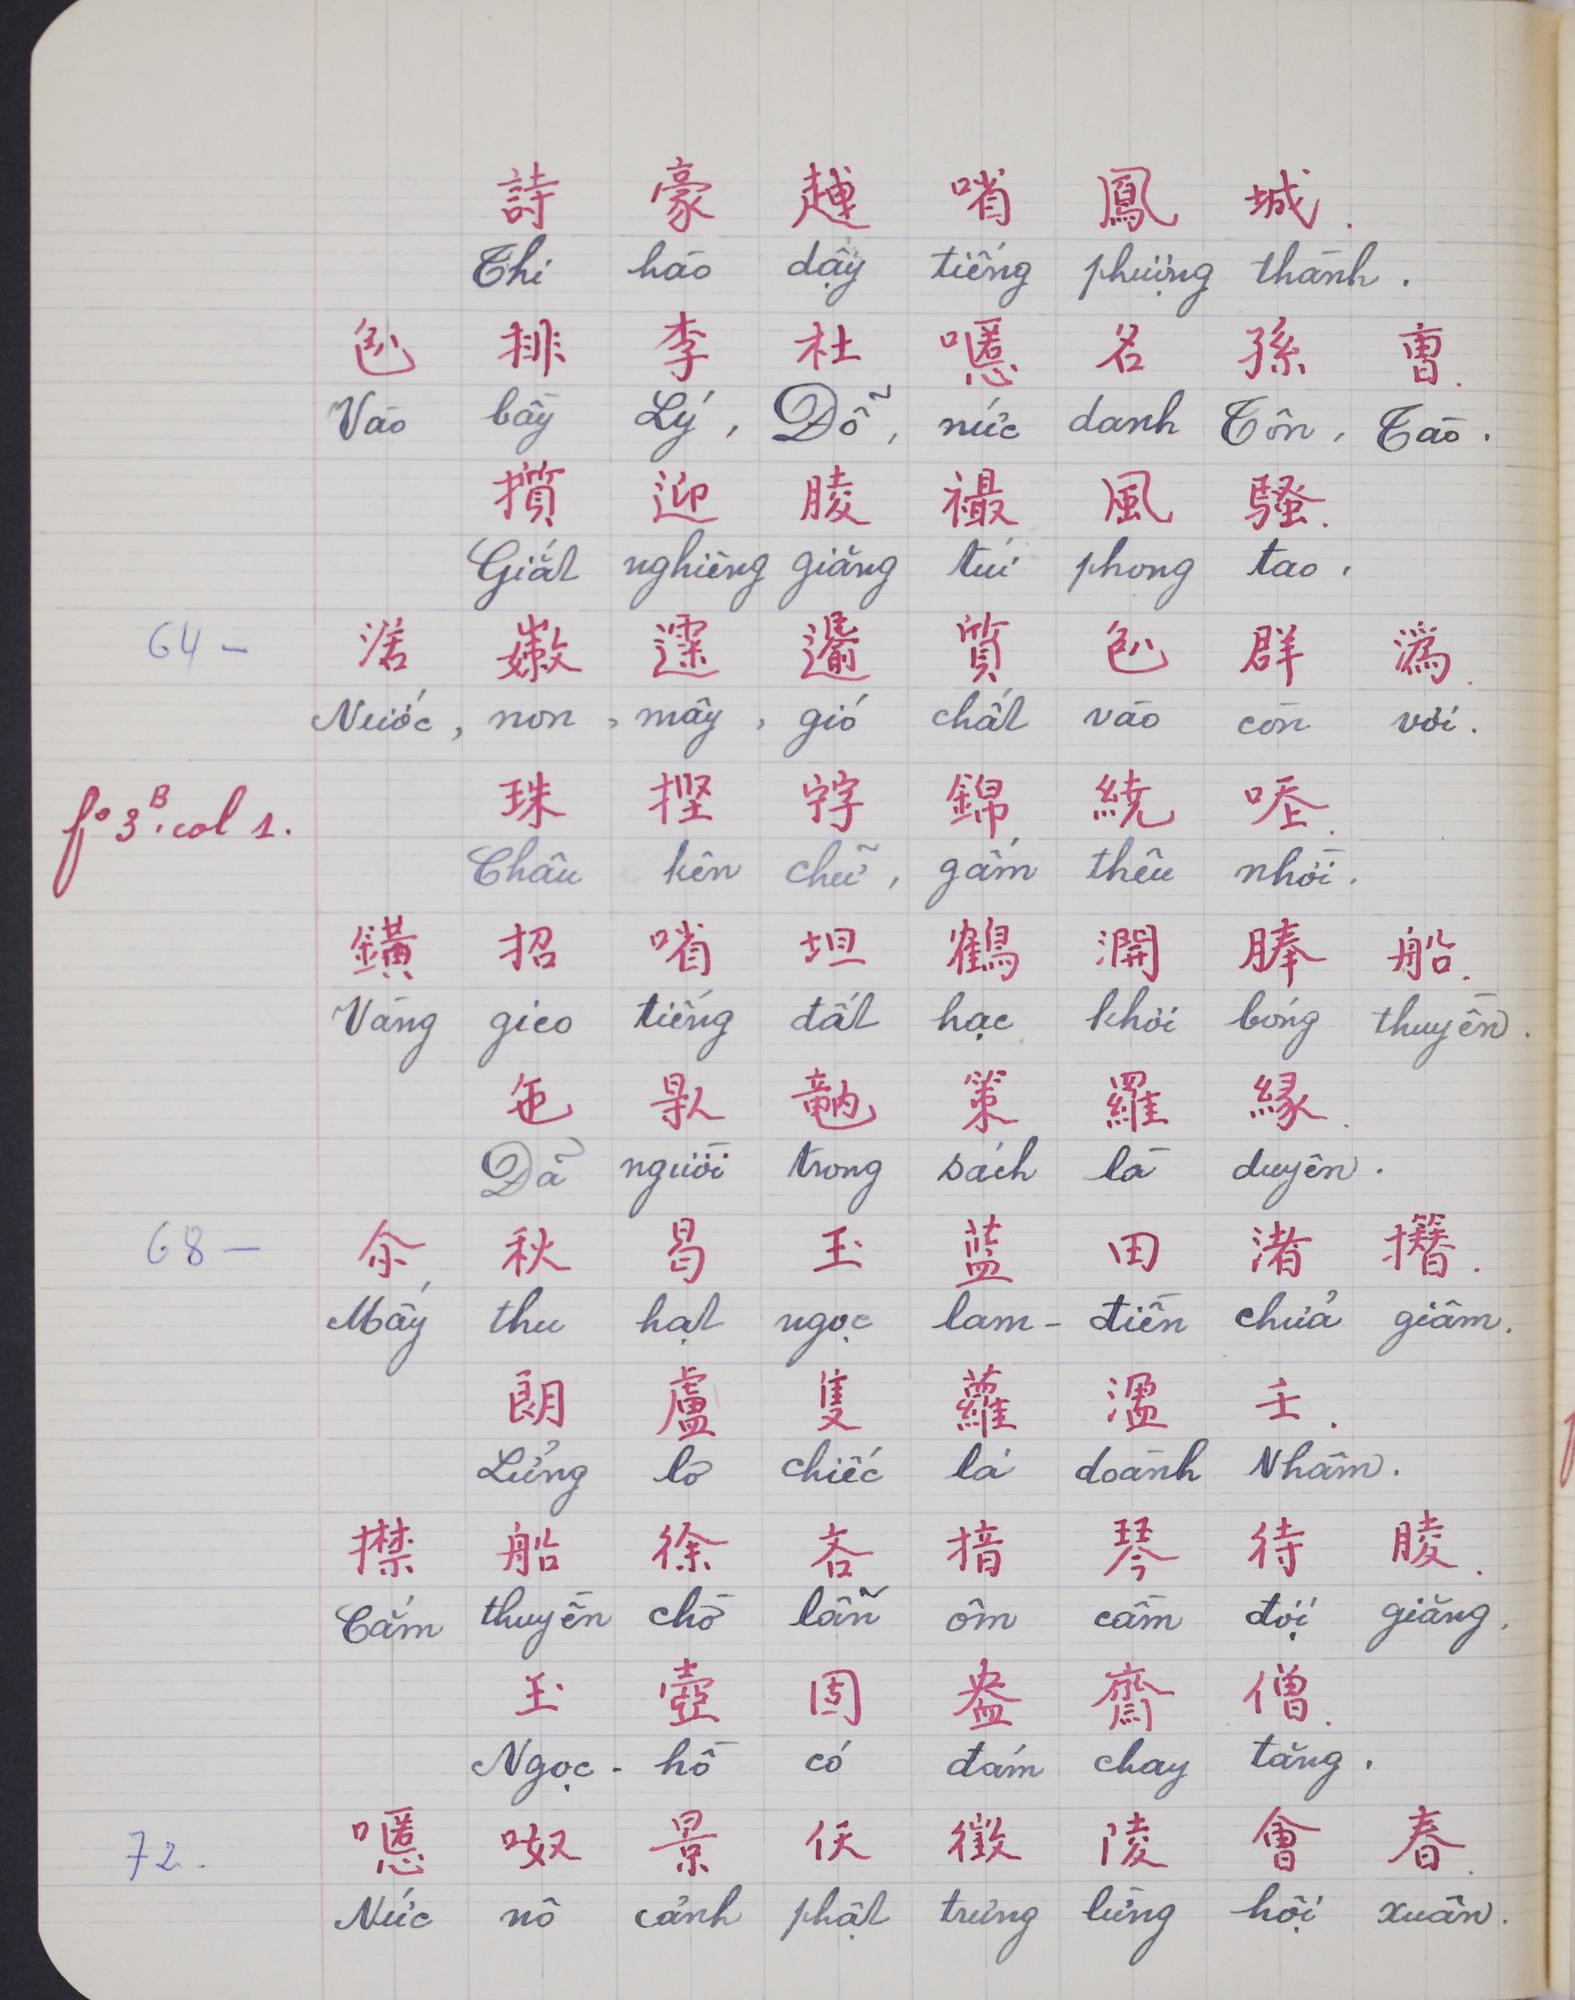 詩 豪 越 哨 鳳 城.
Thi hào dậy tiếng phượng thành.
排 李 杜 㗩 名 孫 曹.
Vào bầy Lý, Đỗ, nức danh Tôn, Tào.
攢 迎 䔖 襊 風 騷.
Giắt nghiêng giăng túi phong tao.
64 — 渃 𡽫 質 群 潙.
Nước, non, mây, gió chất vào còn vơi.
fº 3 B. col 1.
珠 摼 𡨸 錦 繞 㗀.
Châu kên chữ, gấm thêu nhời.
鐄 招 哨 坦 鶴 𣼭 䏾 船.
Vàng gieo tiếng đất hạc khơi bóng thuyền.
𠓨 策 羅 緣.
Dẫ người trong sách là duyên.
68 — 尒 秋 曷 玉 蓝 田 渚 撍.
Mấy thu hạt ngọc lam-điền chửa giâm.
朗 盧 隻 蘿 溋 壬.
Lửng lơ chiếc lá doành Nhâm.
擽 船 徐 吝 揞 琴 待 䏾.
Cắm thuyền chờ lẫn ôm cầm đợi giăng.
玉 壺 固 盎 齋 僧.
Ngọc-hồ có đám chay tăng.
72. 㗩 呶 景 仸 徵 陵 會 春.
Nức nô cảnh phật trưng lừng hội xuân.